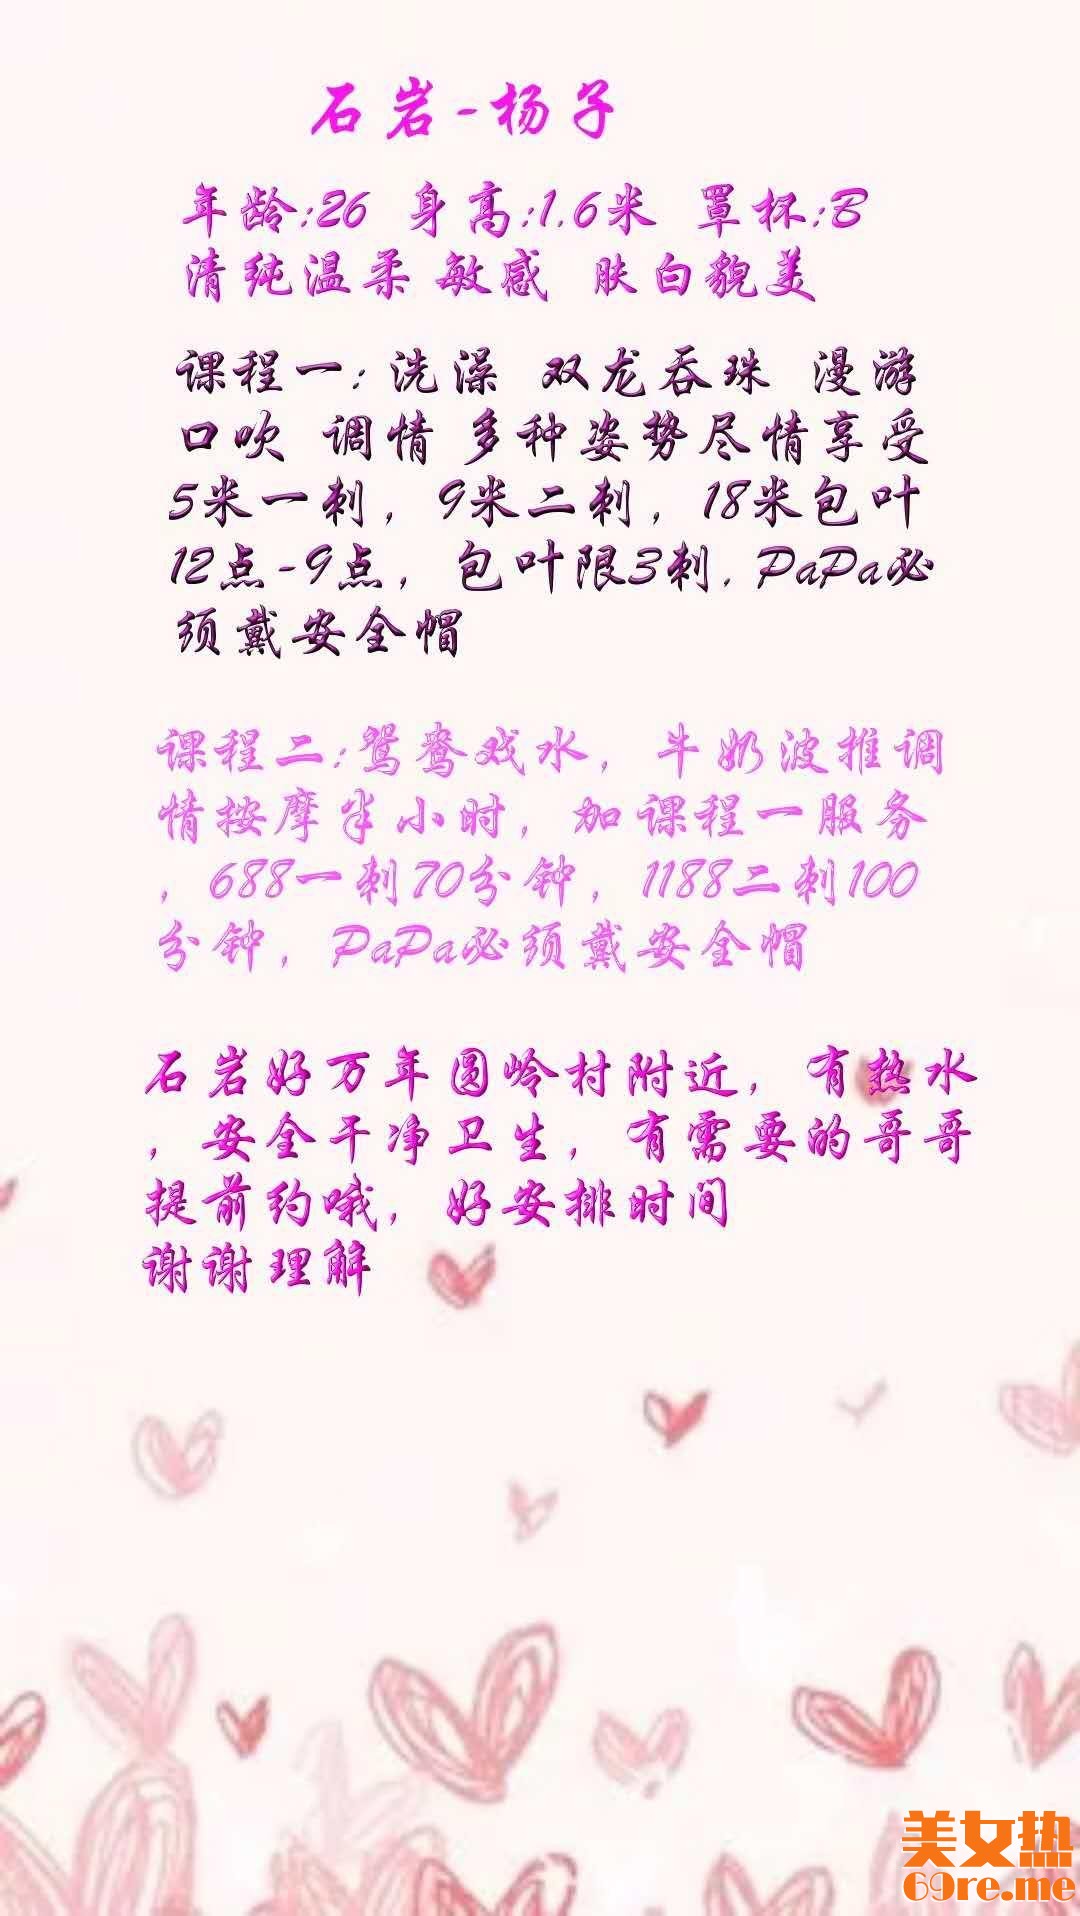 石岩-杨子
年龄:26 身高:1.6米 罩杯:B
清纯温柔 敏感 肤白貌美
课程一: 洗澡 双龙吞珠 漫游
口吹 调情 多种姿势尽情享受
5米一刺，9米二刺，18米包叶
12点-9点，包叶限3刺. PaPa必
须戴安全帽
课程二:鸳鸯戏水，牛奶波推调
情按摩半小时，加课程一服务
，688一刺70分钟，1188二刺100
分钟，PaPa必须戴安全帽
石岩好万年圆岭村附近，有热水
，安全干净卫生，有需要的哥哥
提前约哦，好安排时间
谢谢理解
美女热
69re.me